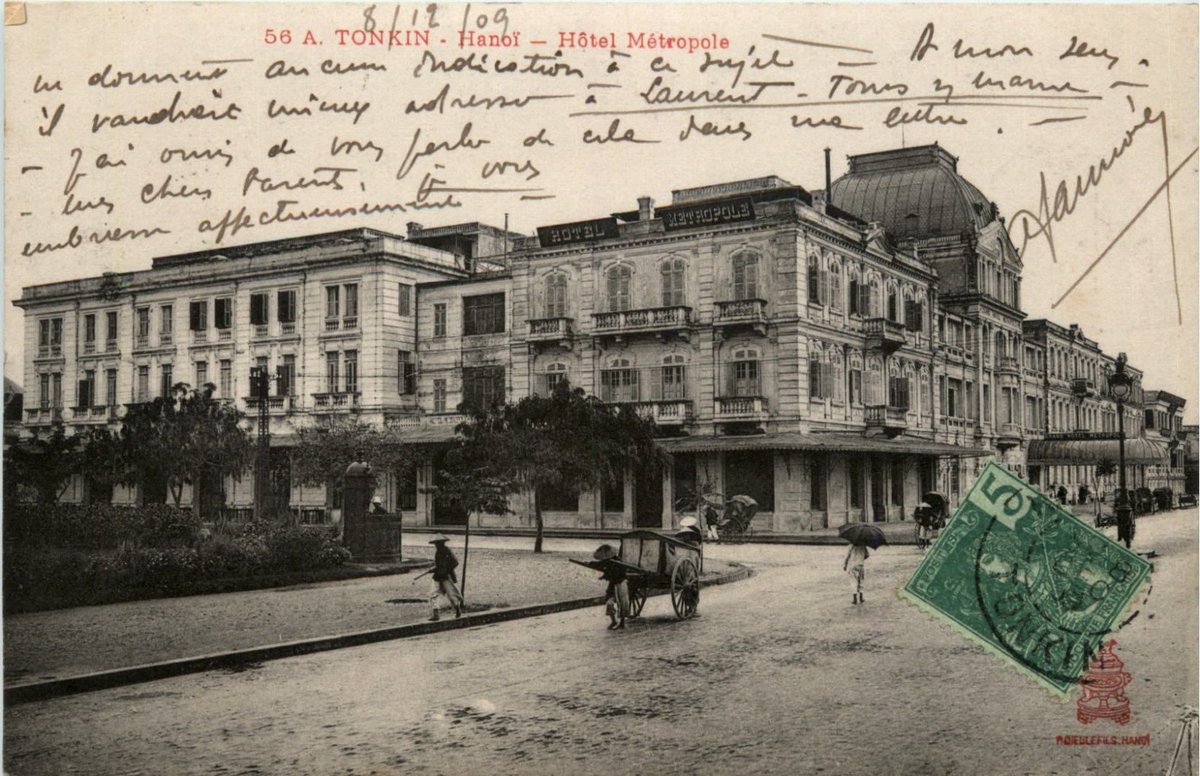 8/12/09
56 A. TONKIN - Hanoï — Hôtel Métropole
en donnent aucune indication à ce sujet — A mon sens,
il vaudrait mieux adresser — à Laurent - Tours
- J'ai omis de vous parler de cela dans ma lettre. —
- mes chers Parents. Je vous
embrasse affectueusement —
HOTEL MÉTROPOLE
5
TONKIN
P. DIEULEFILS, HANOÏ